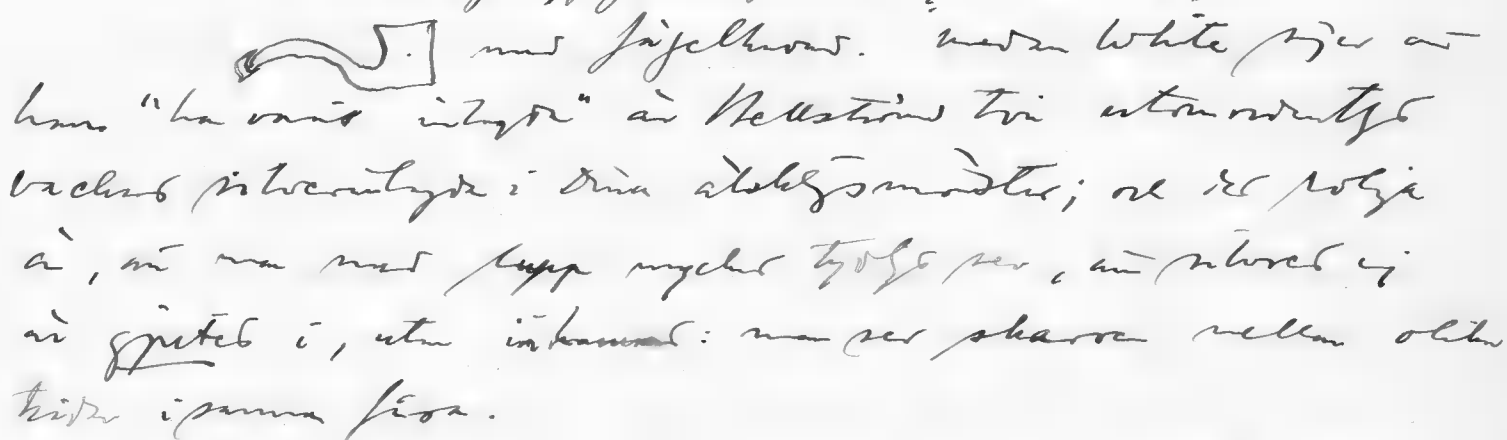 med fågelhuvud. medan White säger att
hans "har varit inlagda" är Hellströms två utomordentligt
vackert silverinlagda i Dina älsklingsmönster; och det roliga
är, att man med lupp mycket tydligt ser, att silvret ej
är gjutet i, utan inhamrat: man ser skarven mellan olika
trådar i samma fåra.